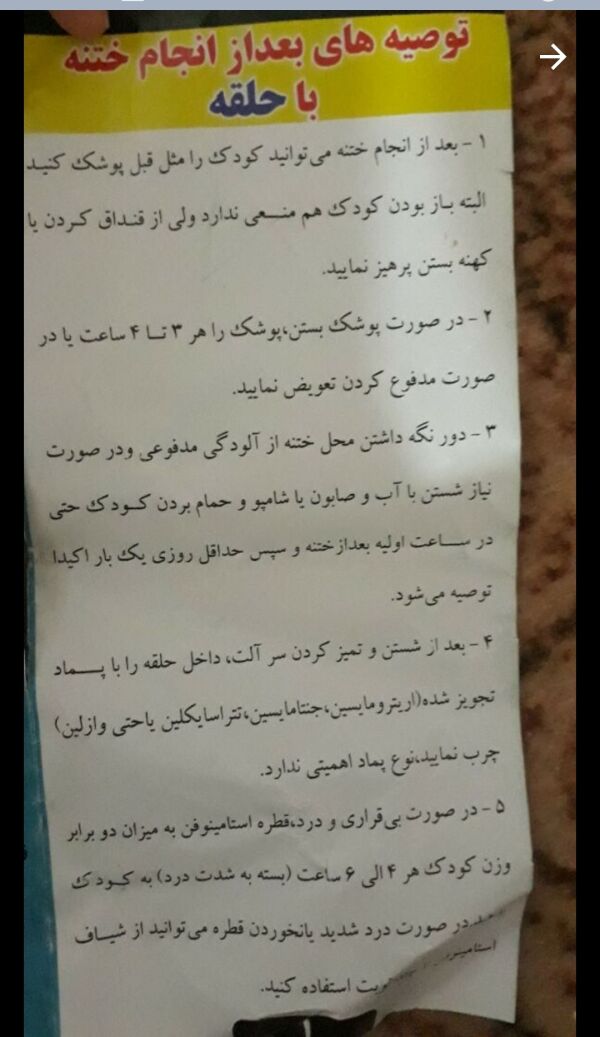 توصیه های بعداز انجام ختنه
با حلقه
۱ - بعد از انجام ختنه می‌توانید کودک را مثل قبل پوشک کنید
البته باز بودن کودک هم منعی ندارد ولی از قنداق کردن یا
کهنه بستن پرهیز نمایید.
۲ - در صورت پوشک بستن،پوشک را هر ۳ تا ۴ ساعت یا در
صورت مدفوع کردن تعویض نمایید.
۳ - دور نگه داشتن محل ختنه از آلودگی مدفوعی ودر صورت
نیاز شستن با آب و صابون یا شامپو و حمام بردن کودک حتی
در ساعت اولیه بعدازختنه و سپس حداقل روزی یک بار اکیدا
توصیه می‌شود.
۴ - بعد از شستن و تمیز کردن سر آلت، داخل حلقه را با پماد
تجویز شده(اریترومایسین،جنتامایسین،تتراسایکلین یاحتی وازلین)
چرب نمایید،نوع پماد اهمیتی ندارد.
۵ - در صورت بی‌قراری و درد،قطره استامینوفن به میزان دو برابر
وزن کودک هر ۴ الی ۶ ساعت (بسته به شدت درد) به کودک
در صورت درد شدید یانخوردن قطره می‌توانید از شیاف
استفاده کنید.